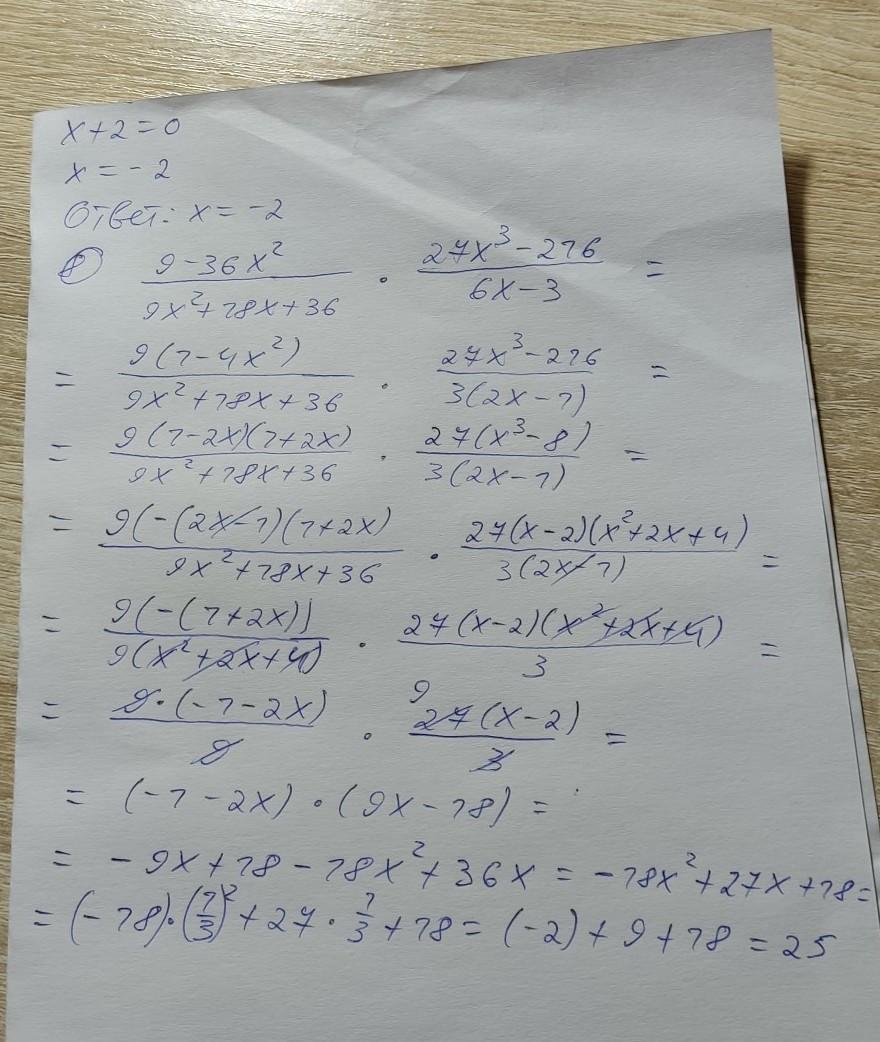 x+2=0
x=-2
Ответ: x=-2
⑧ (9-36x²)/(9x²+18x+36) · (27x³-216)/(6x-3) =
= 9(1-4x²)/(9x²+18x+36) · (27x³-216)/(3(2x-1)) =
= 9(1-2x)(1+2x)/(9x²+18x+36) · 27(x³-8)/(3(2x-1)) =
= 9(-(2x-1)(1+2x)/(9x²+18x+36) · 27(x-2)(x²+2x+4)/(3(2x-1)) =
= 9(-(1+2x))/(9(x²+2x+4)) · 27(x-2)(x²+2x+4)/3 =
= 9·(-1-2x)/9 · 9 27(x-2)/3 =
= (-1-2x)·(9x-18) =
= -9x+18-18x²+36x = -18x²+27x+18 =
= (-18)·(1/3)²+27·1/3+18 = (-2)+9+18 = 25